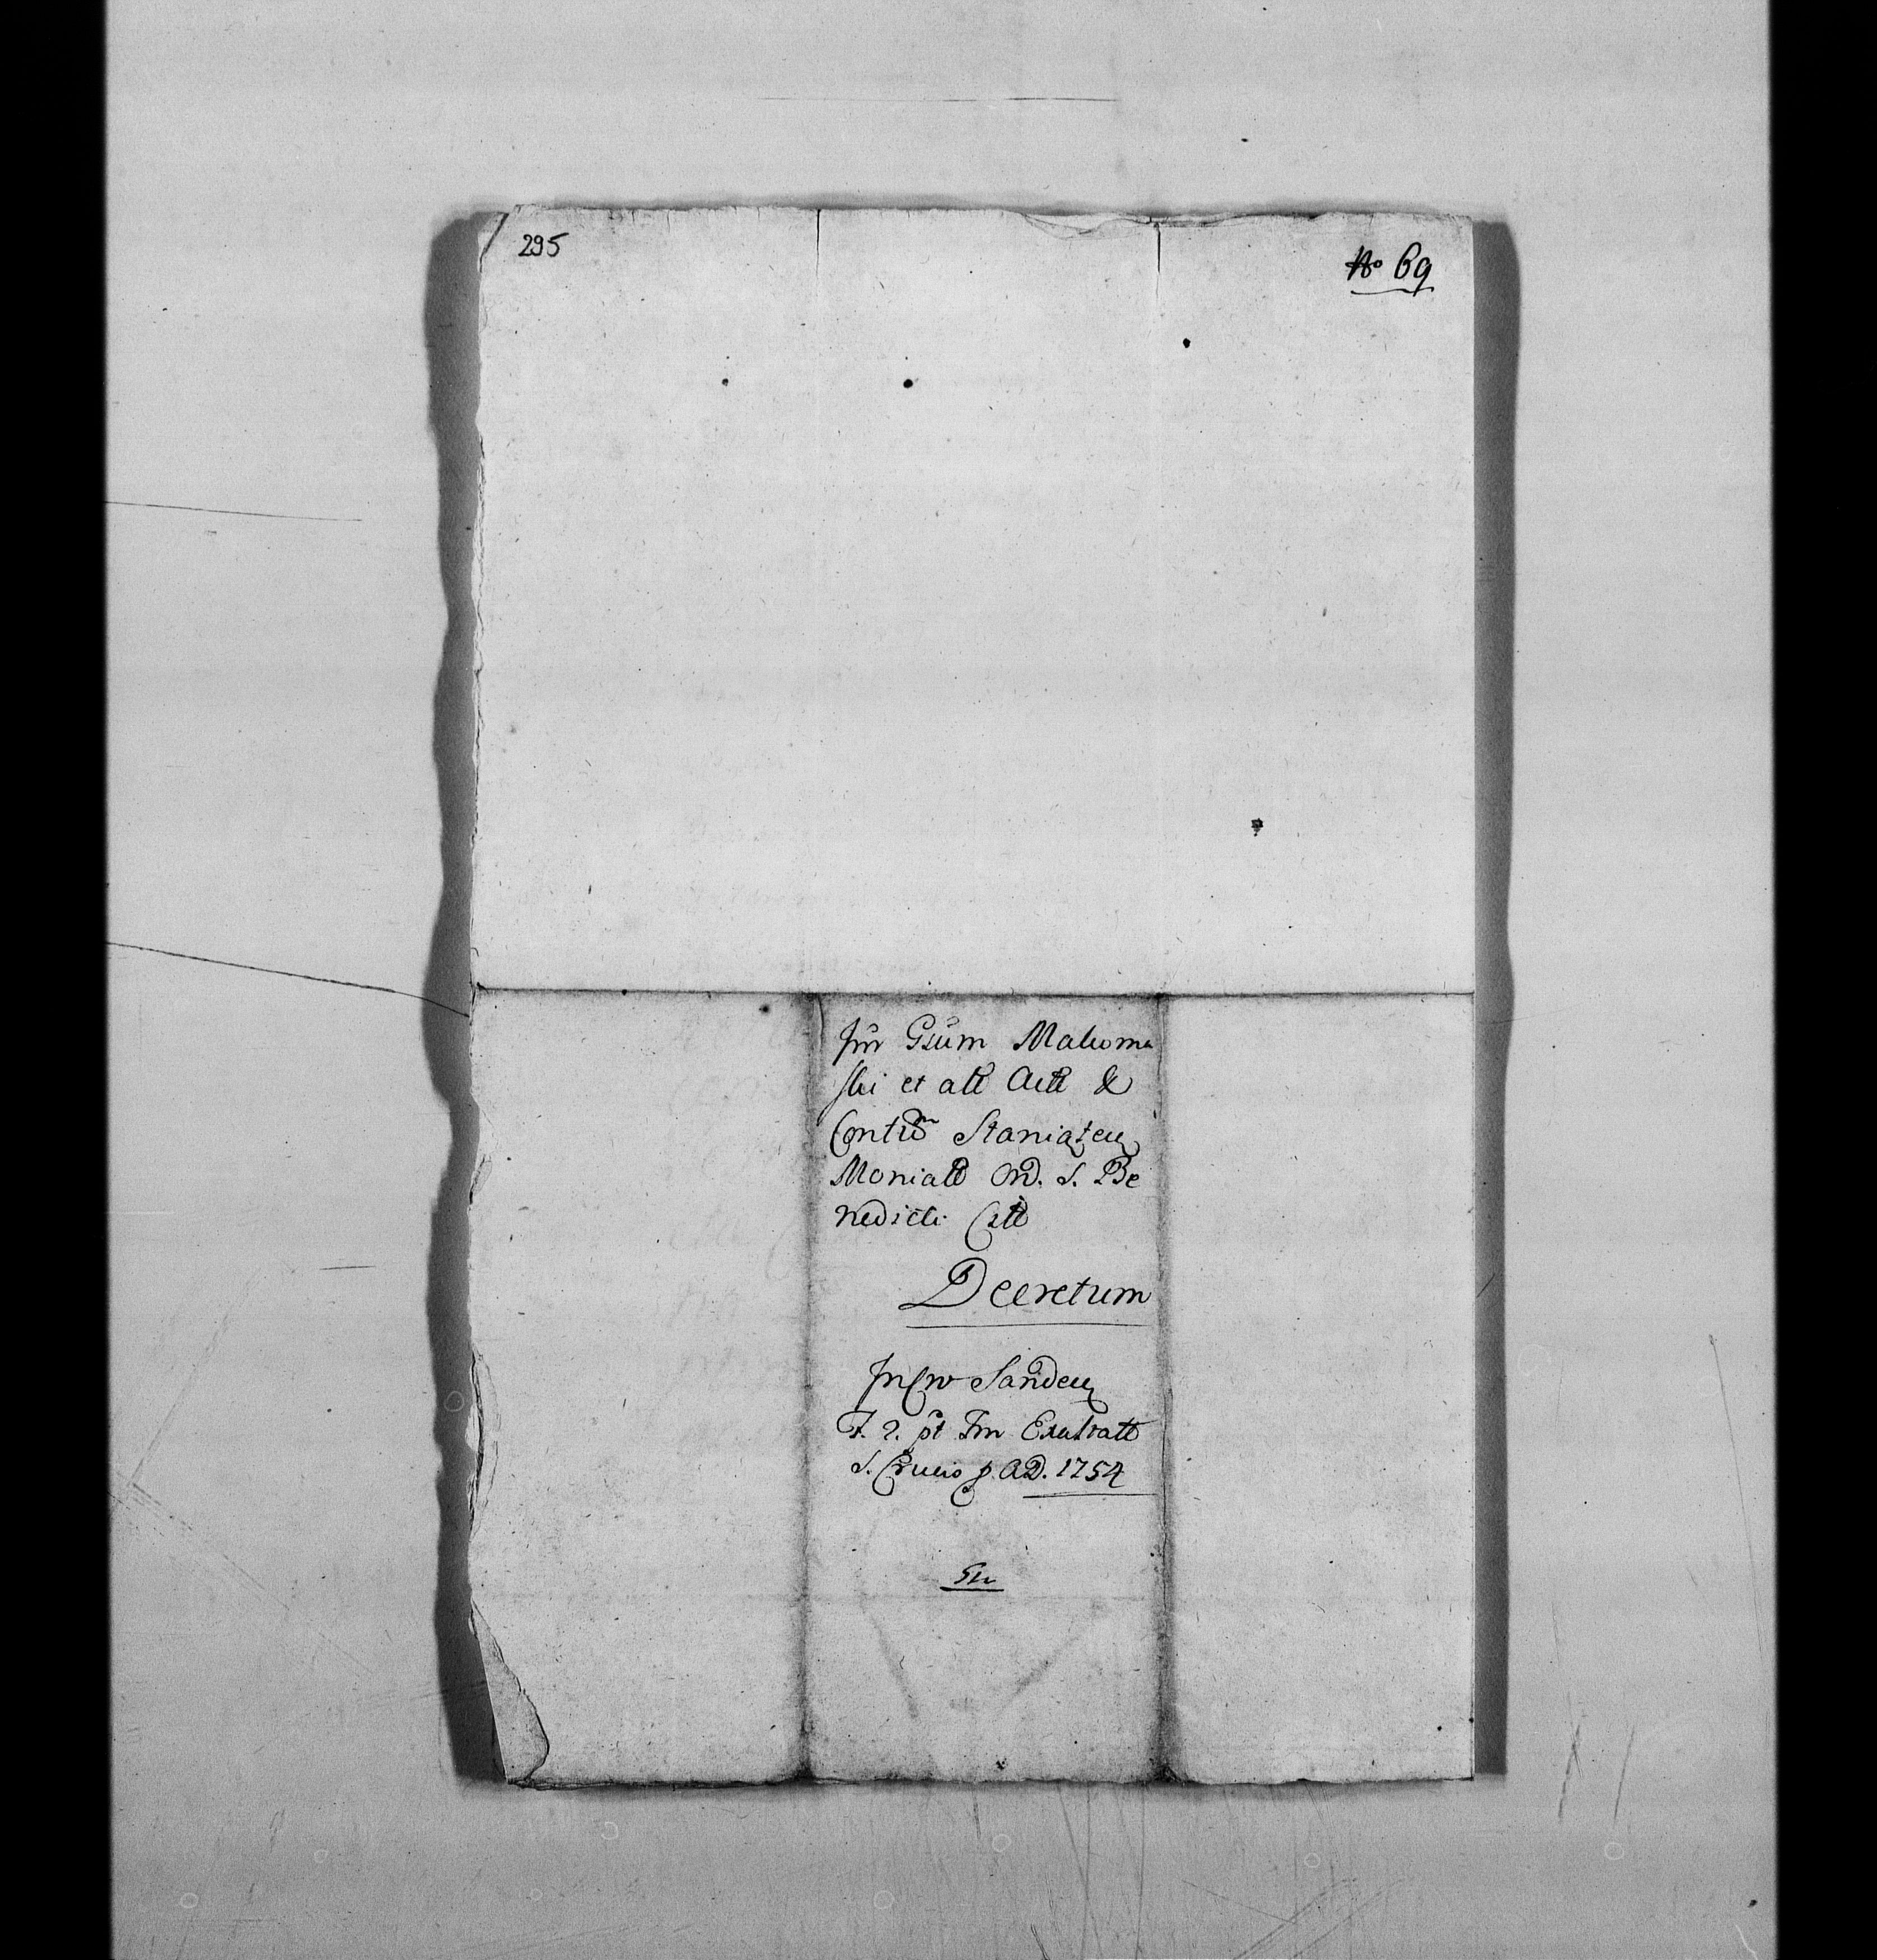 295
No 69
Jnr Gsum Mahoma
ski et all Actt &
Conttm Staniatecz
Moniall Ord. S. Be
nedicti Citt
Decretum
Sandecz
F. 2. pt Exaltatt
S. Crucis p AD. 1754